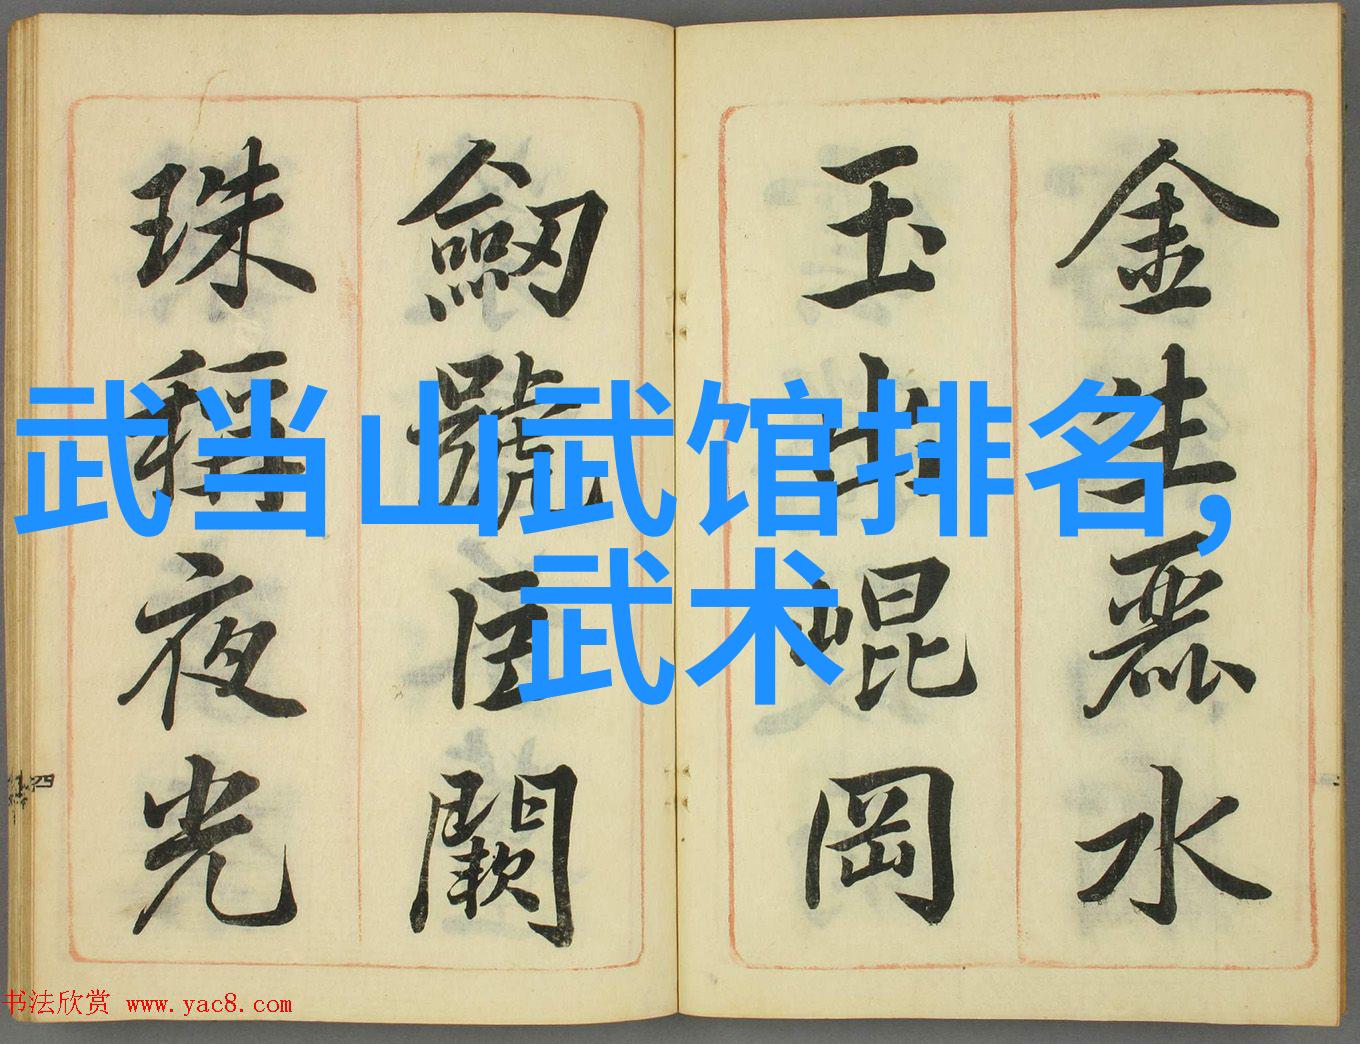 金生麗水
玉出崐岡
劒號巨闕
珠稱夜光
武当山武馆排名,
武术
书法欣赏 www.yac8.com